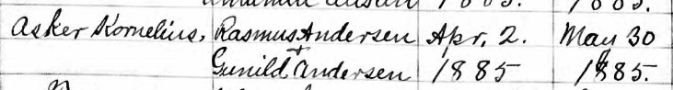 Asker Kornelius, Rasmus Andersen Apr. 2. May 30
+
Gunild Andersen 1885 1885.